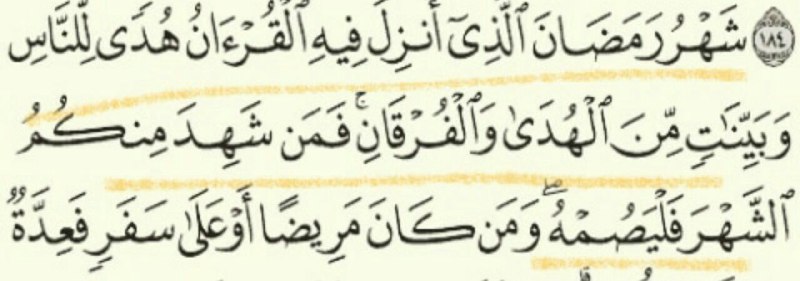 ١٨٤ شَهْرُ رَمَضَانَ ٱلَّذِىٓ أُنزِلَ فِيهِ ٱلْقُرْءَانُ هُدًى لِّلنَّاسِ
وَبَيِّنَٰتٍ مِّنَ ٱلْهُدَىٰ وَٱلْفُرْقَانِ ۚ فَمَن شَهِدَ مِنكُمُ
ٱلشَّهْرَ فَلْيَصُمْهُ ۖ وَمَن كَانَ مَرِيضًا أَوْ عَلَىٰ سَفَرٍ فَعِدَّةٌ